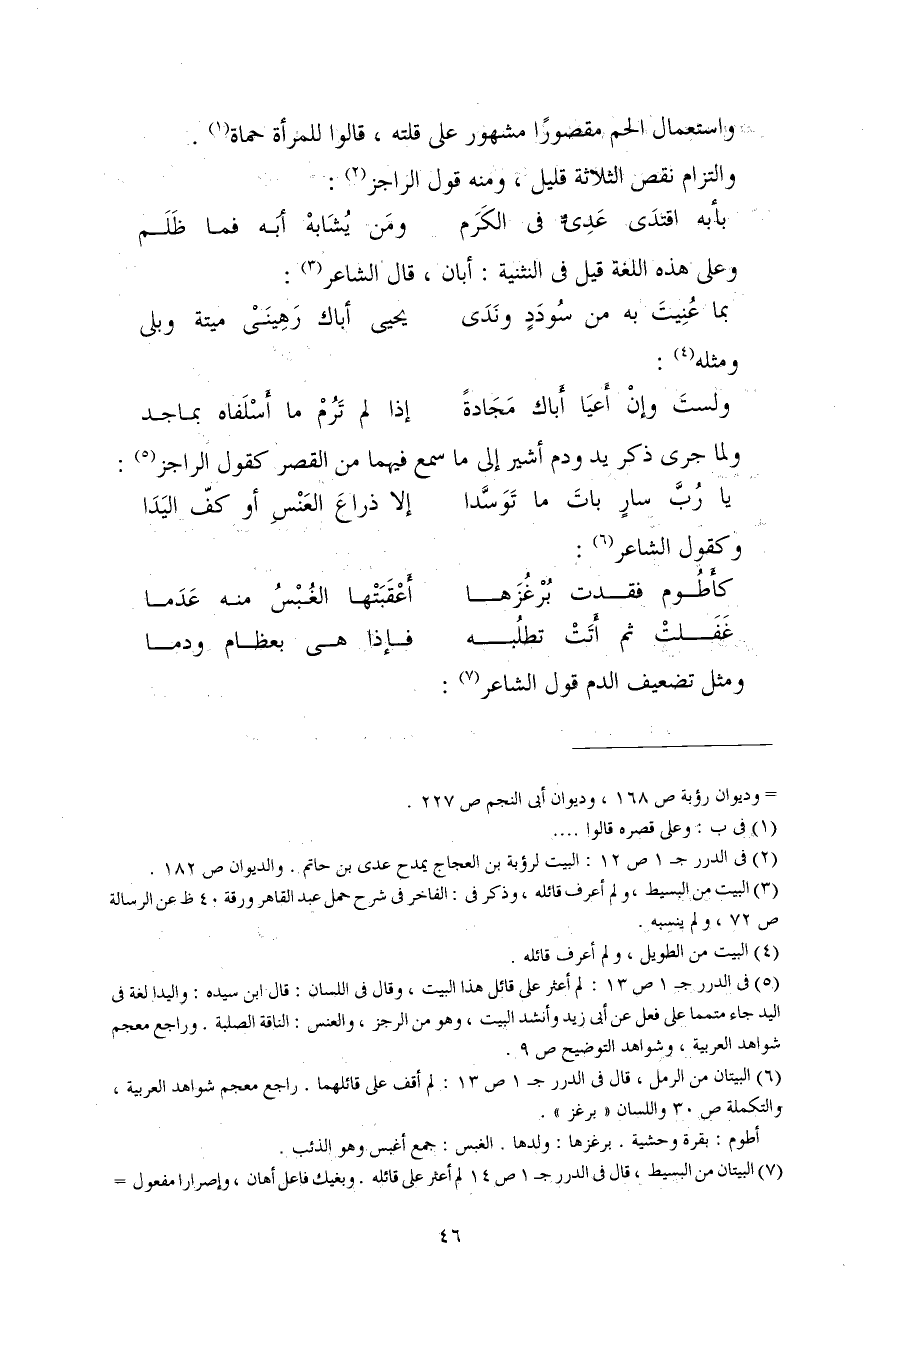 واستعمال الحم مقصورًا مشهور على قلته ، قالوا للمرأة حماة(١) .
والتزام نقص الثلاثة قليل ، ومنه قول الراجز(٢) :
بأبه اقتدَى عَدِىٌّ فى الكَرَم ومَن يُشَابهْ أبَه فما ظَلَم
وعلى هذه اللغة قيل فى التثنية : أبان ، قال الشاعر(٣) :
بما عُنِيتَ به من سُودَدٍ ونَدَى يحيى أباك رَهِينَىْ ميتة وبلى
ومثله(٤) :
ولستَ وإنْ أَعيَا أَباك مَجَادةً إذا لم تَرُمْ ما أَسْلَفاه بماجد
ولما جرى ذكر يد ودم أشير إلى ما سمع فيهما من القصر كقول الراجز(٥) :
يا رُبَّ سارٍ باتَ ما تَوَسَّدا إلا ذراعَ العَنْسِ أو كفّ اليَدَا
وكقول الشاعر(٦) :
كأَطُوم فقدت بُرْغُزَها أَعْقَبَتْها الغُبْسُ منه عَدَما
غَفَلتْ ثم أَتَتْ تطلُبه فإذا هى بعظام ودما
ومثل تضعيف الدم قول الشاعر(٧) :
= وديوان رؤبة ص ١٦٨ ، وديوان أبى النجم ص ٢٢٧ .
(١) فى ب : وعلى قصره قالوا ....
(٢) فى الدرر جـ ١ ص ١٢ : البيت لرؤبة بن العجاج يمدح عدى بن حاتم . والديوان ص ١٨٢ .
(٣) البيت من البسيط ، ولم أعرف قائله ، وذكر فى : الفاخر فى شرح جمل عبد القاهر ورقة ٤٠ ظ عن الرسالة
ص ٧٢ ، ولم ينسبه .
(٤) البيت من الطويل ، ولم أعرف قائله .
(٥) فى الدرر جـ ١ ص ١٣ : لم أعثر على قائل هذا البيت ، وقال فى اللسان : قال ابن سيده : واليدا لغة فى
اليد جاء متمما على فعل عن أبى زيد وأنشد البيت ، وهو من الرجز ، والعنس : الناقة الصلبة . وراجع معجم
شواهد العربية ، وشواهد التوضيح ص ٩ .
(٦) البيتان من الرمل ، قال فى الدرر جـ ١ ص ١٣ : لم أقف على قائلهما . راجع معجم شواهد العربية ،
والتكملة ص ٣٠ واللسان « برغز » .
أطوم : بقرة وحشية . برغزها : ولدها . الغبس : جمع أغبس وهو الذئب .
(٧) البيتان من البسيط ، قال فى الدرر جـ ١ ص ١٤ لم أعثر على قائله . وبغيك فاعل أهان ، وإصرارا مفعول =
٤٦